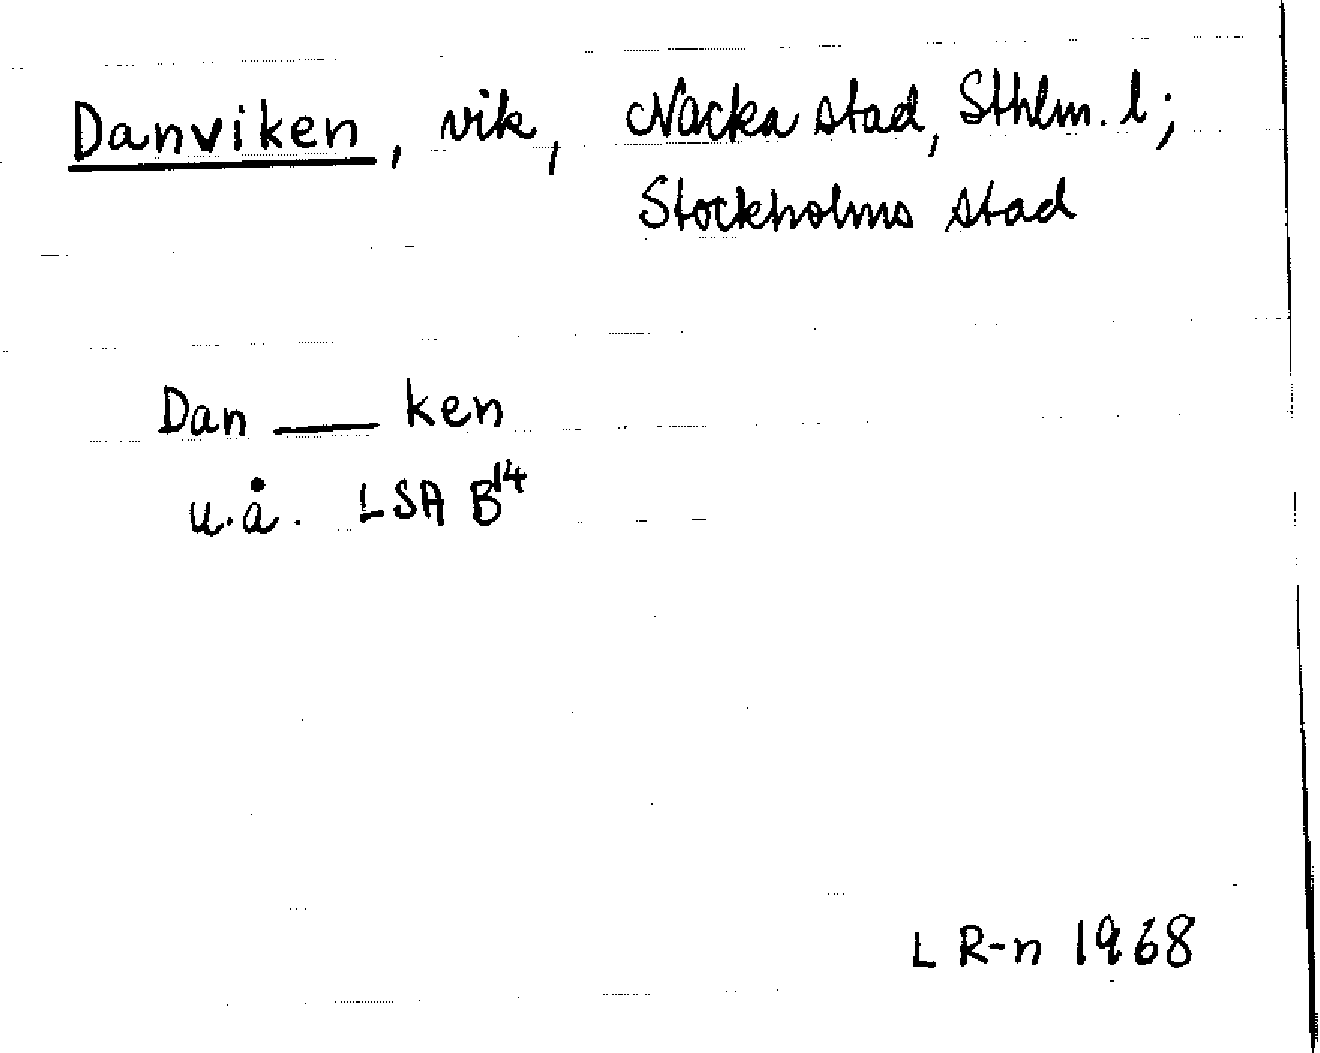 Danviken, vik, Nacka stad, Sthlm. l;
Stockholms stad
Dan ___ ken
u.å. LSA B14
L R-n 1968